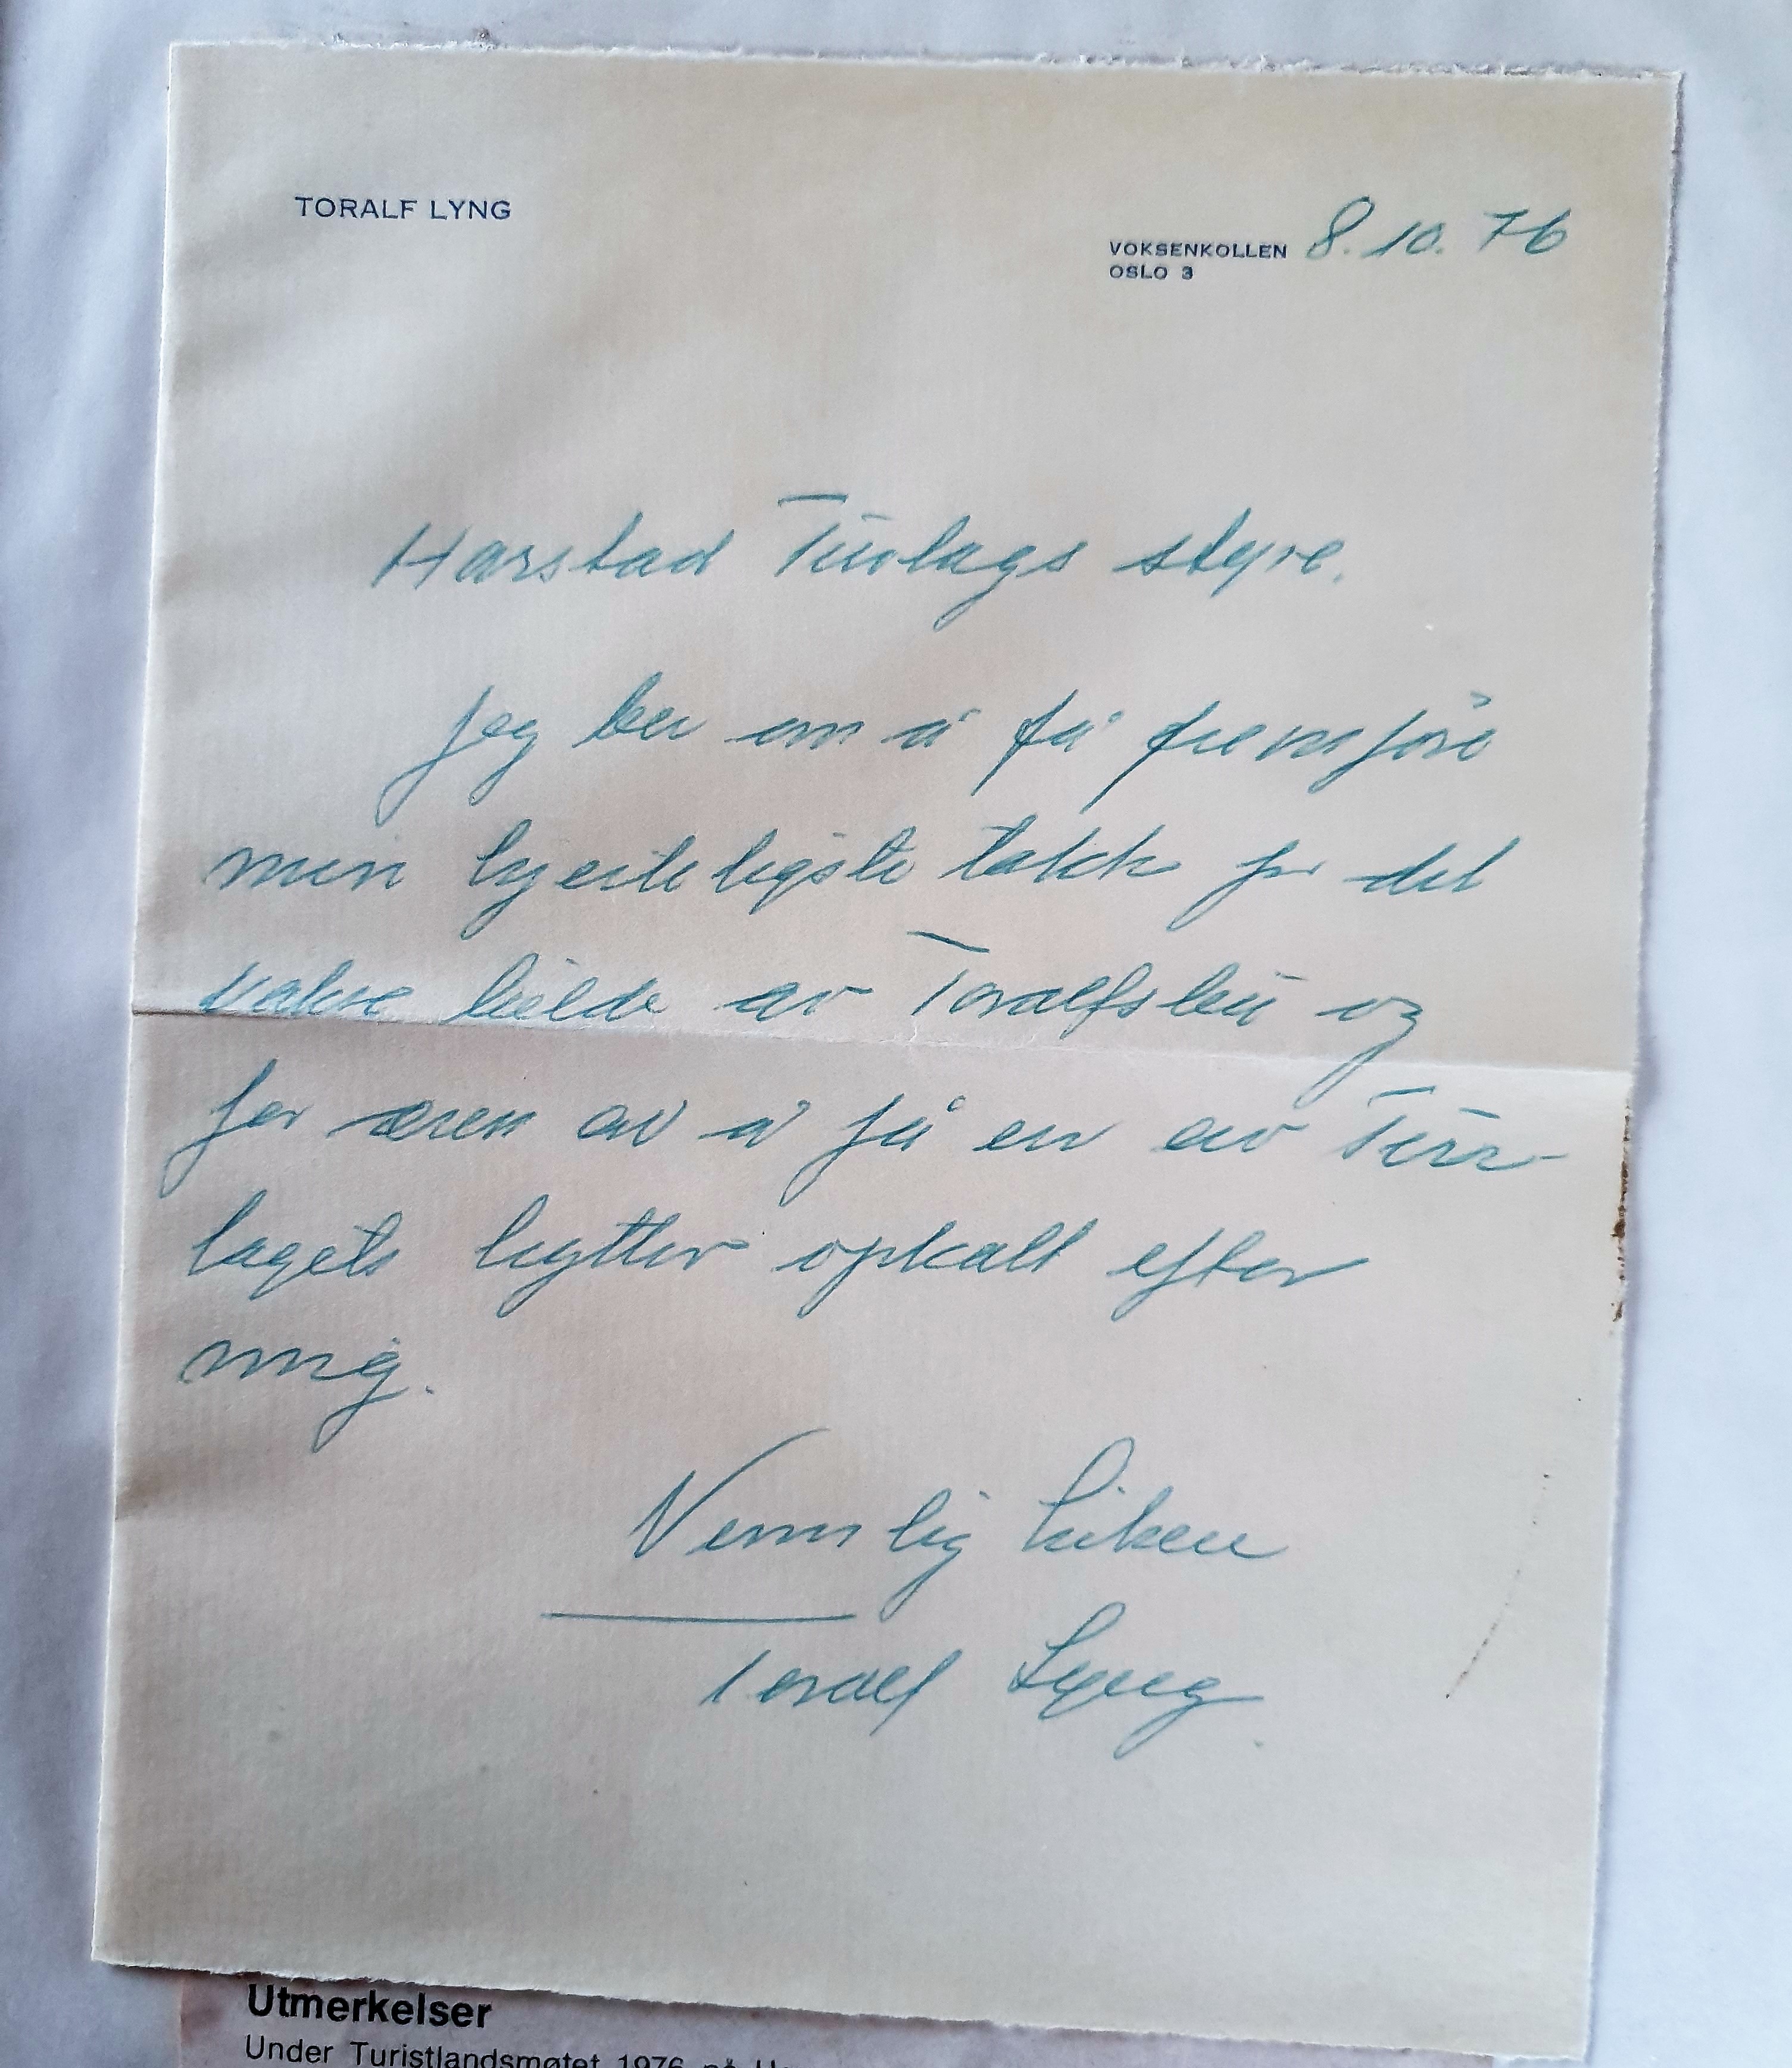 TORALF LYNG
VOKSENKOLLEN 8.10.76
OSLO 3
Harstad Turlags styre.
Jeg ber om å få fremføre
min hjerteligste takk for det
vakre bilde av Toralfsbu og
for æren av å få en av Tur-
lagets hytter opkalt efter
mig.
Vennlig hilsen
Toralf Lyng.
Utmerkelser
Under Turistlandsmøtet 1976 på